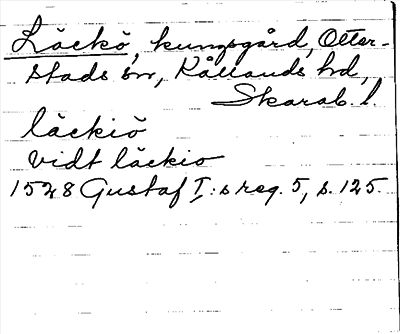 Läckö, kungsgård, Otter-
stads sn, Kållands hd,
Skarab. l.
läckiö
vidt läckio
1528 Gustaf I:s reg. 5, s. 125.